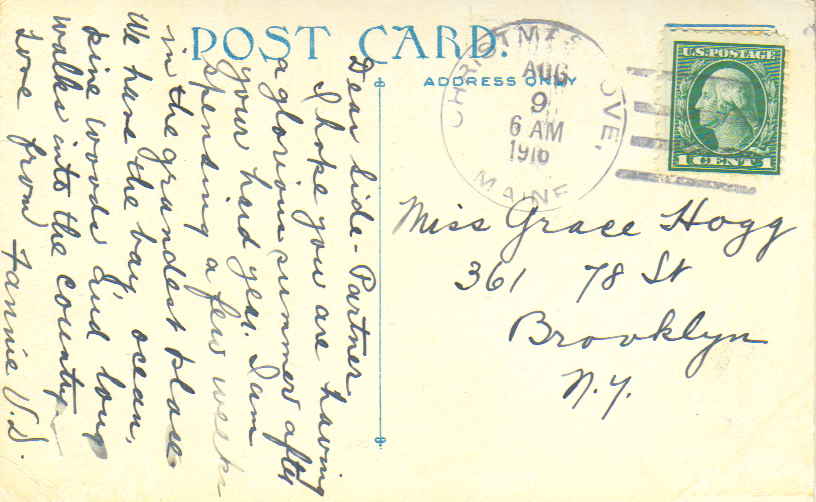 POST CARD.
ADDRESS ONLY
CHRISTMAS COVE,
AUG
9
6 AM
1916
MAINE
U.S. POSTAGE
1 CENT 1
Dear Side-Partner,
I hope you are having
a glorious summer after
your hard year. I am
spending a few weeks
in the grandest place.
We have the bay, ocean,
pine woods and long
walks into the country.
Love from Fannie V.D.
Miss Grace Hogg
361 78 St
Brooklyn
N.Y.